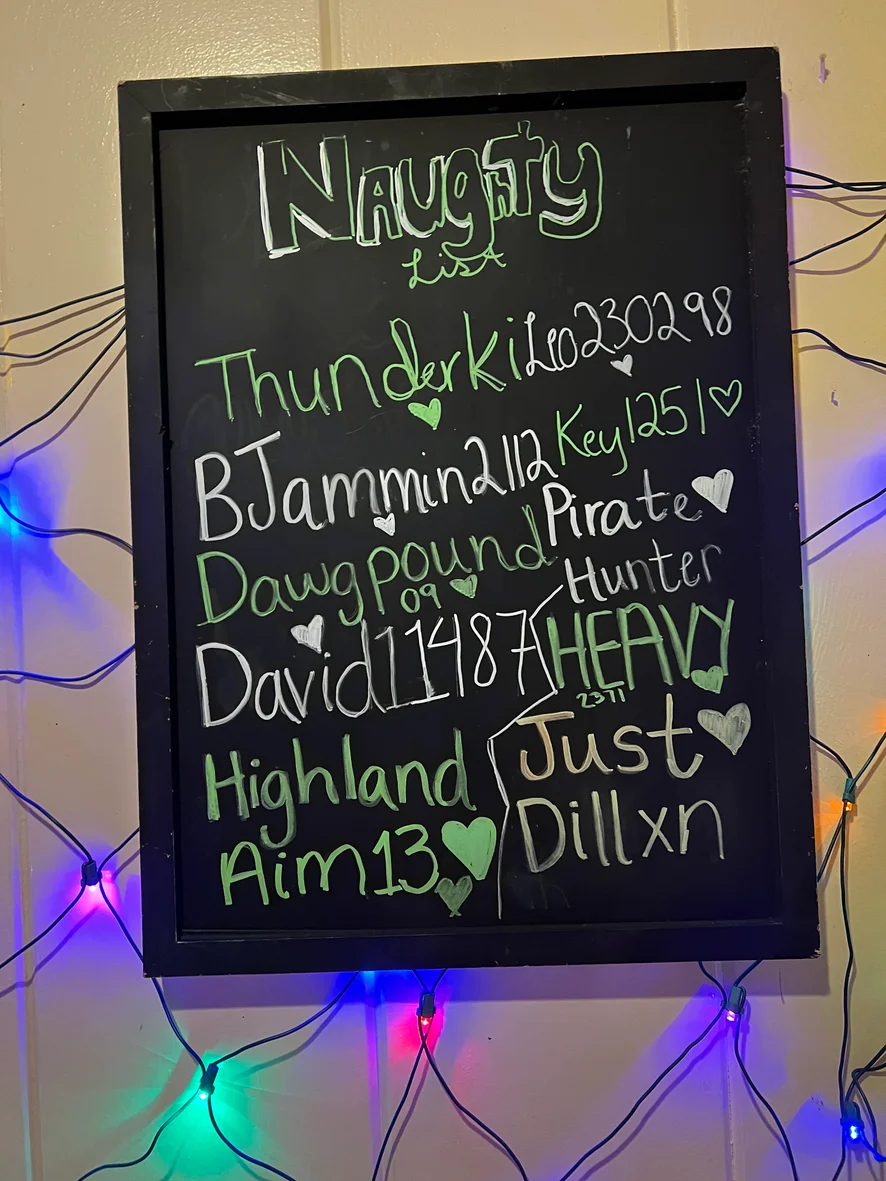 Naughty
List
Thunderki
Leo230298
BJammin2112
Key1251
Dawgpound
09
Pirate
Hunter
David11487
HEAVY
2371
Highland
Aim13
Just
Dillxn